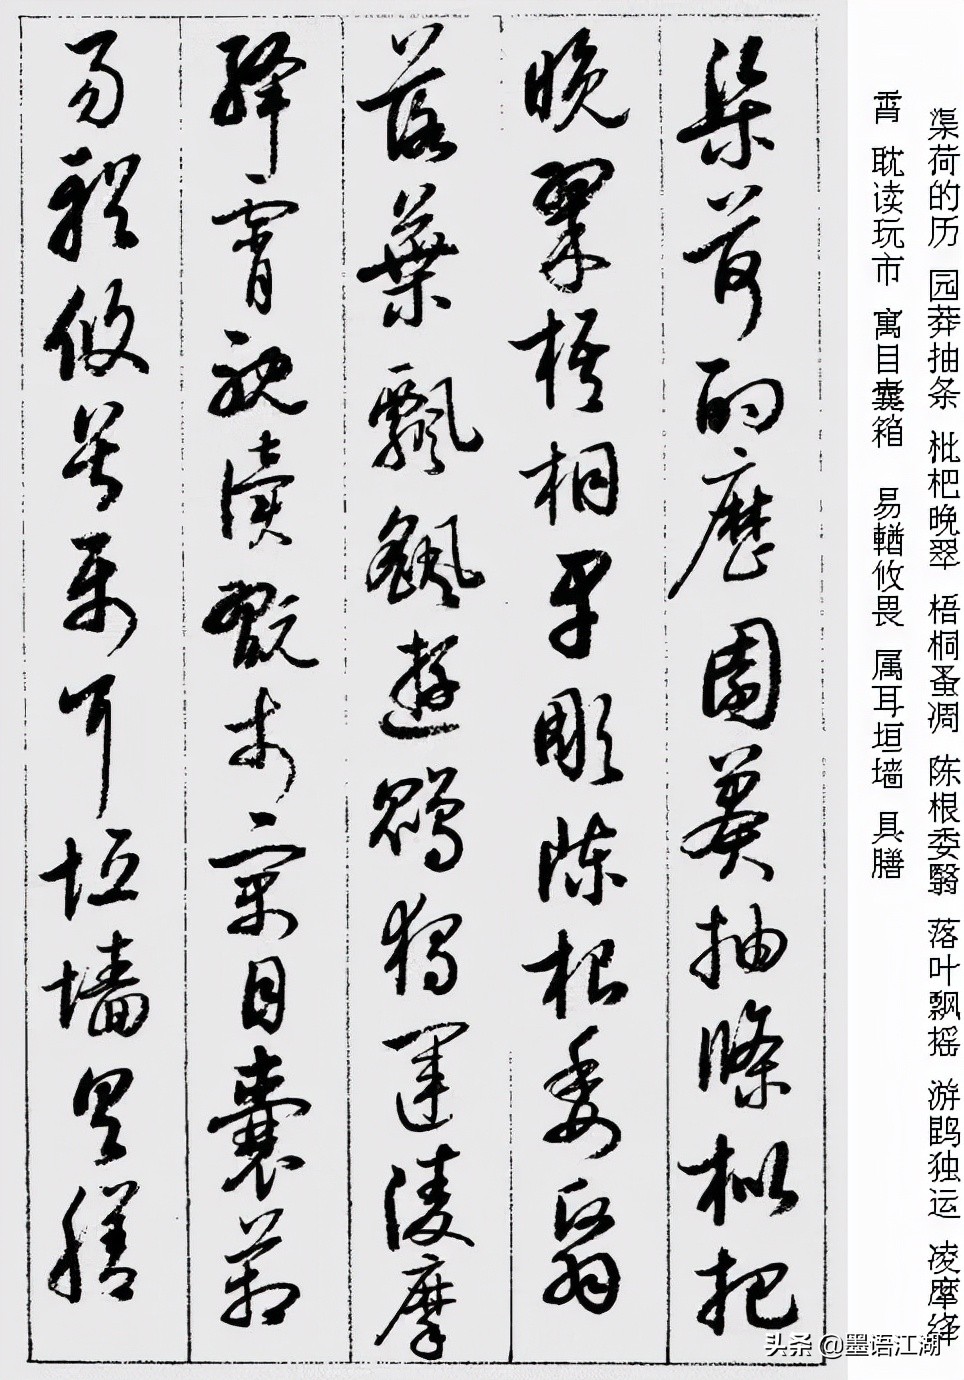 渠荷的历 园莽抽条 枇杷晚翠 梧桐蚤凋 陈根委翳 落叶飘摇 游鹍独运 凌摩绛
霄 耽读玩市 寓目囊箱 易輶攸畏 属耳垣墙 具膳
渠荷的歷園莽抽條枇杷
晚翠梧桐早彫陳根委翳
落葉飄颻遊鵾獨運凌摩
絳霄耽讀翫市寓目囊箱
易輶攸畏屬耳垣墻具膳
头条 @墨语江湖